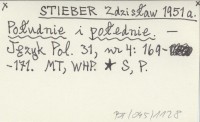 × STIEBER Zdzisław 1951a. ×
Południe i połednie. —
Język Pol. 31, nr 4: 169-
-171. MT, WHP. ★ S, P.